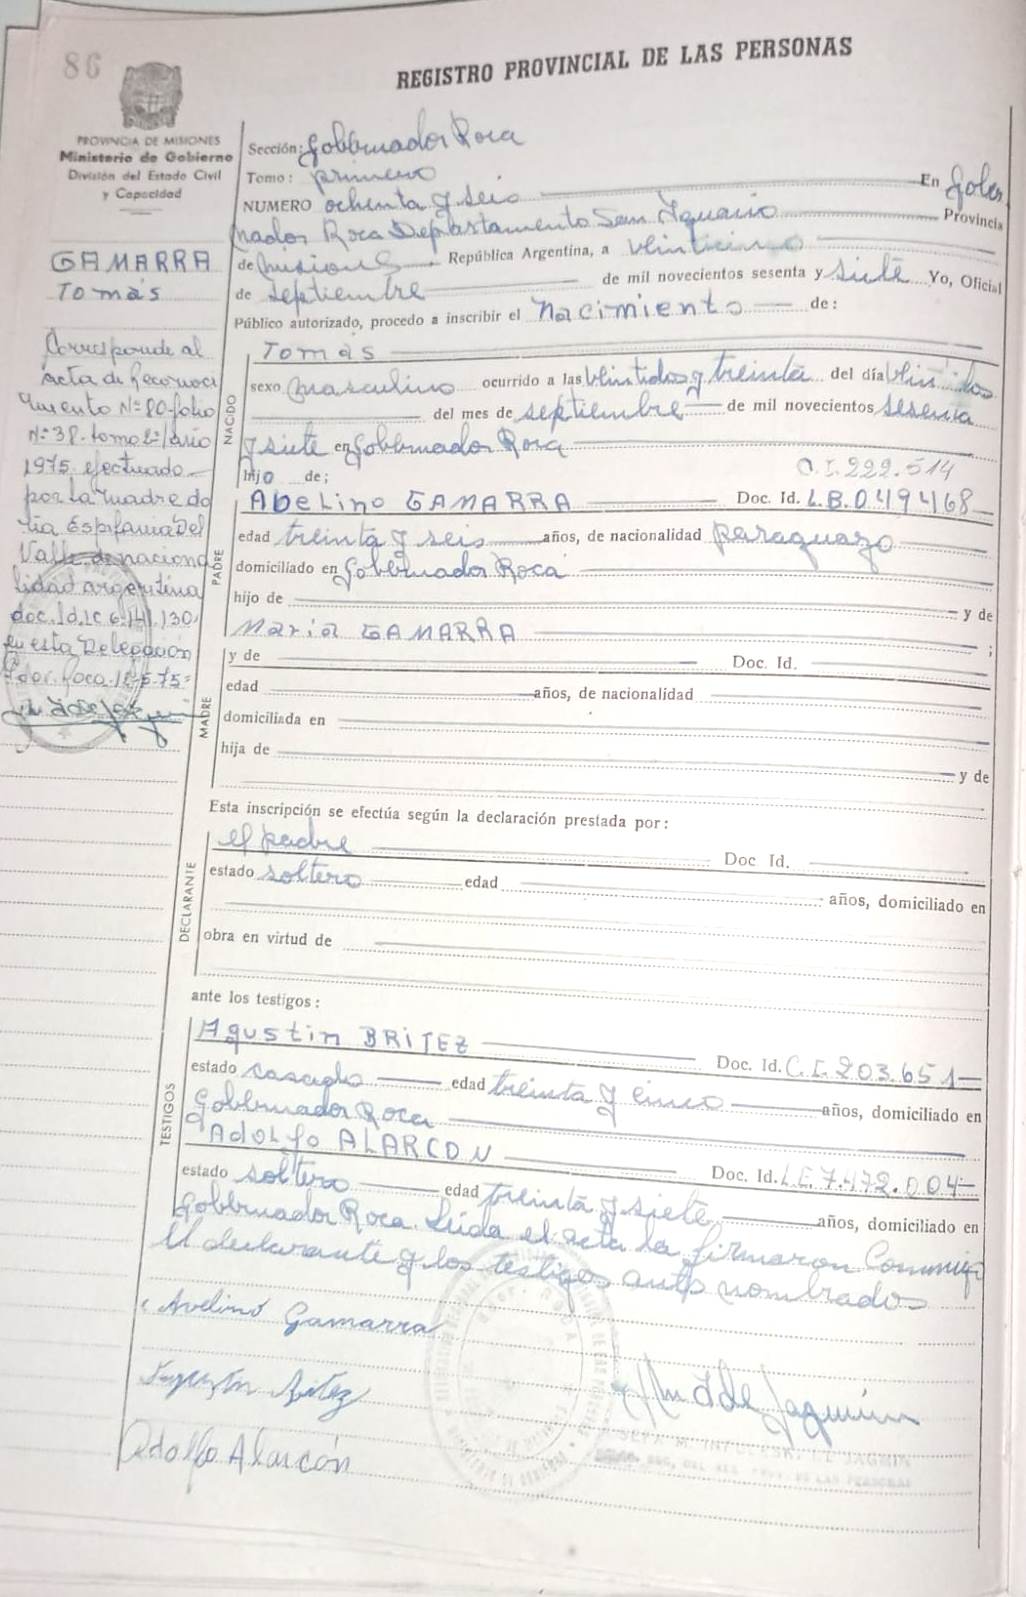 86
REGISTRO PROVINCIAL DE LAS PERSONAS
PROVINCIA DE MISIONES
Ministerio de Gobierno
División del Estado Civil
y Capacidad
GAMARRA
Tomás
Corresponde al
acta de Reconoci
miento Nº 80-folio
Nº 38-tomo 1º/año
1975 efectuado
por la madre do
ña Epifania Del
Valle de naciona
lidad argentina
doc. Id. L C 6.141.130
en esta Delegación
Gdor. Roca
Sección: Gobernador Roca
Tomo: primero
NUMERO ochenta y seis En Gober
nador Roca Departamento San Ignacio Provincia
de Misiones República Argentina, a veinticinco
de septiembre de mil novecientos sesenta y siete Yo, Oficial
Público autorizado, procedo a inscribir el Nacimiento de:
NACIDO
Tomás
sexo masculino ocurrido a las veintidos y treinta del día veintidos
del mes de septiembre de mil novecientos sesenta
y siete en Gobernador Roca
hijo de; C.I. 222.514
PADRE
Abelino GAMARRA Doc. Id. L.B.0494168
edad treinta y seis años, de nacionalidad paraguayo
domiciliado en Gobernador Roca
hijo de y de
Maria GAMARRA ;
MADRE
y de Doc. Id.
edad años, de nacionalidad
domiciliada en
hija de y de
Esta inscripción se efectúa según la declaración prestada por:
DECLARANTE
el padre Doc Id.
estado soltero edad años, domiciliado en
obra en virtud de
ante los testigos:
TESTIGOS
Agustin BRITEZ Doc. Id. C.I. 203.651
estado casado edad treinta y cinco años, domiciliado en
Gobernador Roca
y Adolfo ALARCON Doc. Id. L.E. 7.472.004
estado soltero edad treinta y siete años, domiciliado en
Gobernador Roca. Leida el acta la firmaron conmigo
el declarante y los testigos antes nombrados
Avelino Gamarra
Agustin Britez
Adolfo Alarcón